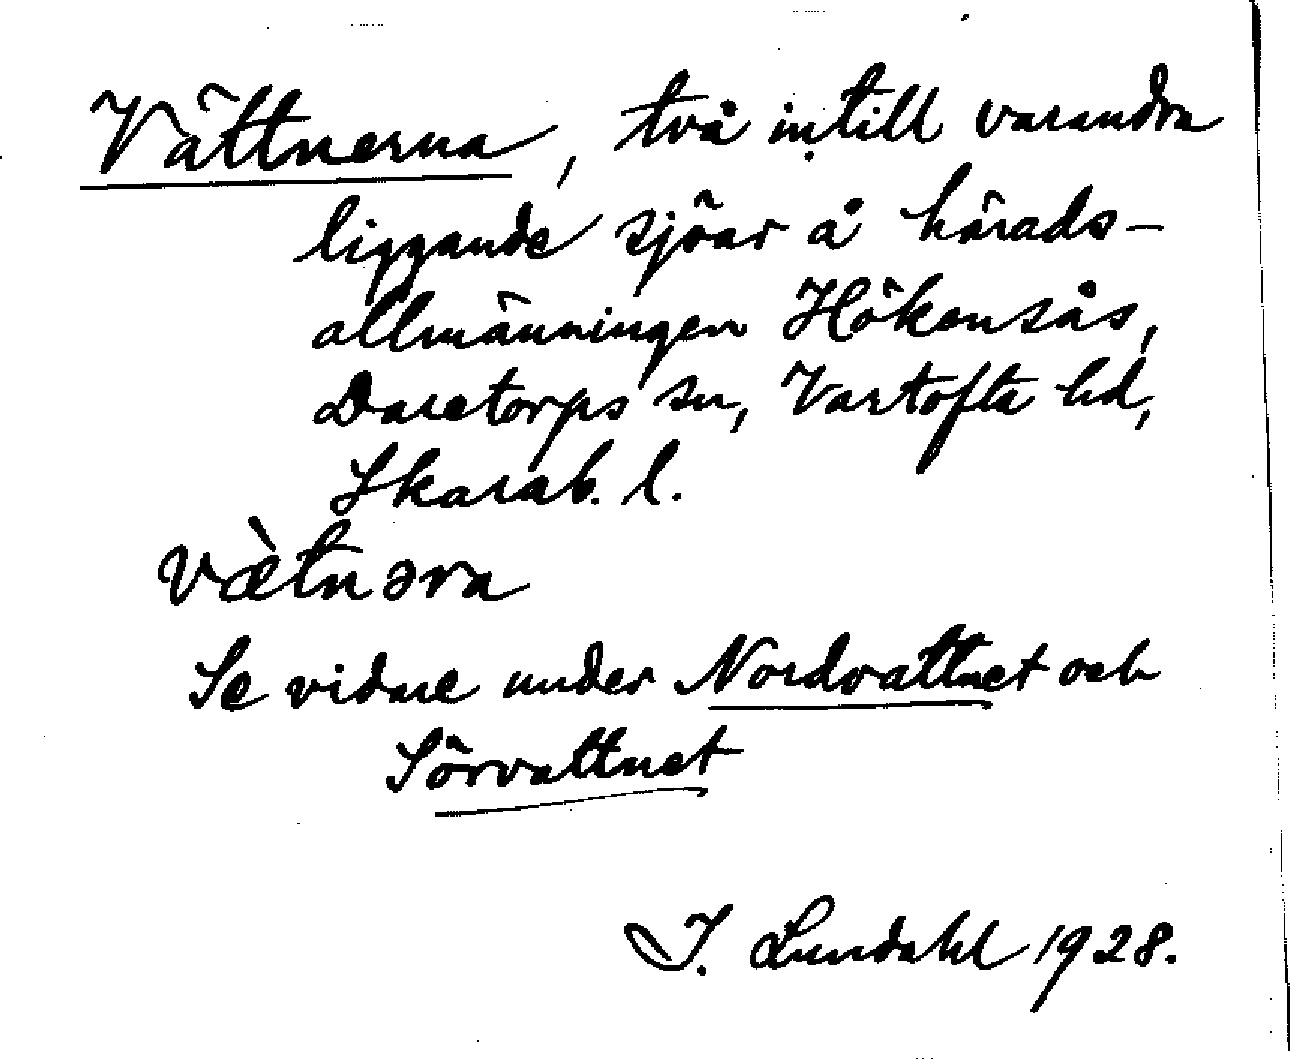 Vättnerna, två intill varandra
liggande sjöar å härads-
allmänningen Hökensås,
Daretorps sn, Vartofta hd,
Skarab. l.
vætnəra
Se vidare under Nordvattnet och
Sörvattnet
I. Lundahl 1928.